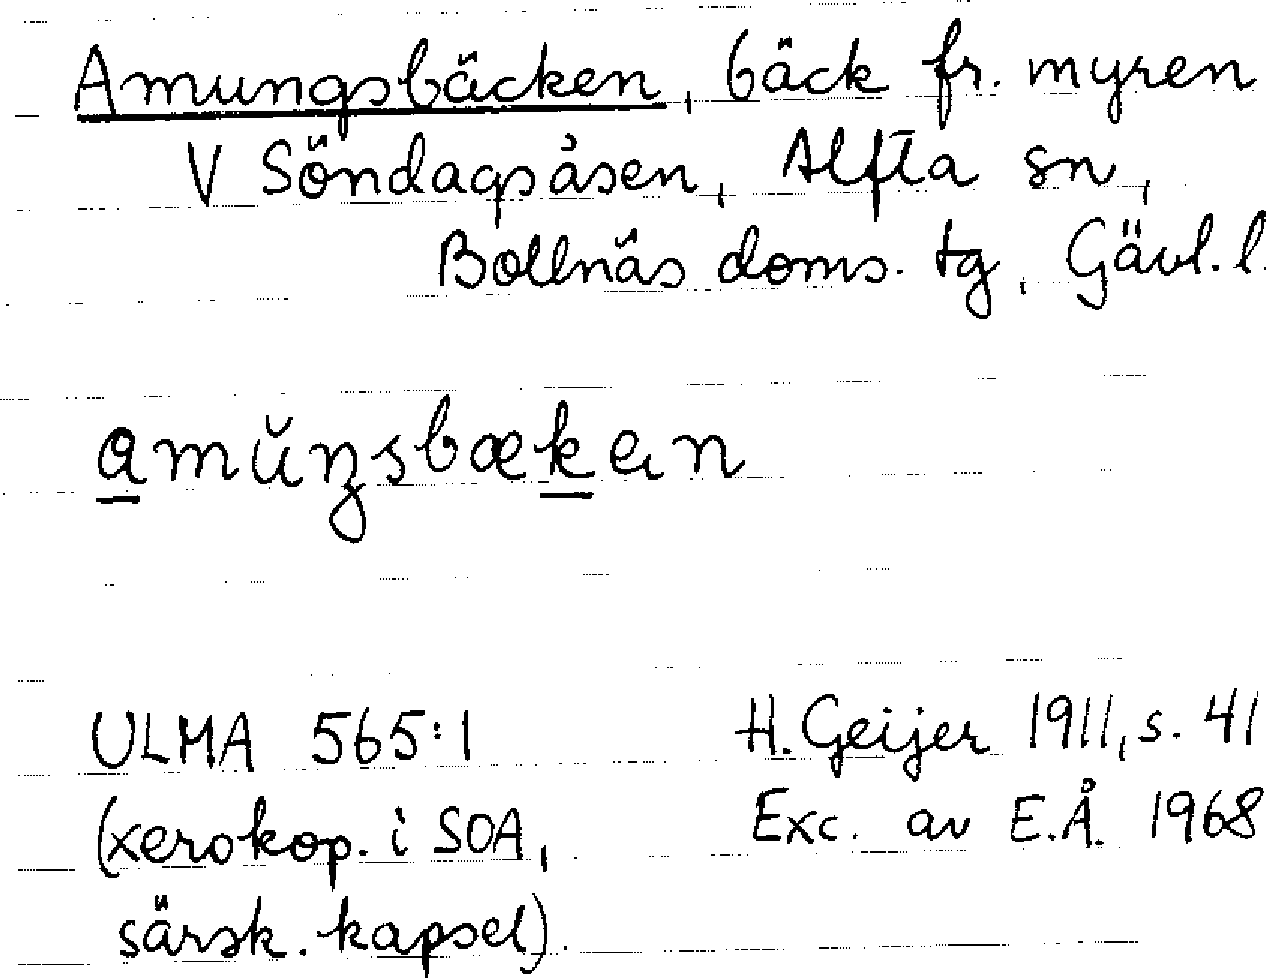 Amungsbäcken, bäck fr. myren
V Söndagsåsen, Alfta sn,
Bollnäs doms. tg, Gävl. l.
amŭŋsbækan
ULMA 565:1
(xerokop. i SOA,
särsk. kapsel).
H. Geijer 1911, s. 41
Exc. av E.Å. 1968